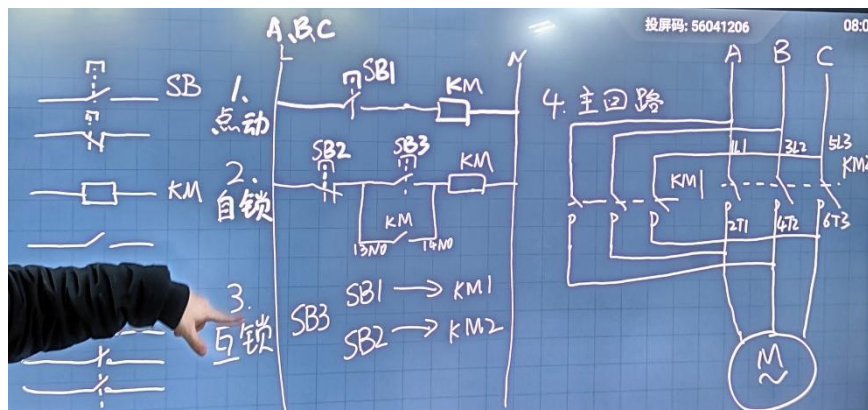 投屏码: 56041206
08:0
A,B,C
L
N
SB
KM
1.
点动
SB1
KM
2.
自锁
SB2
SB3
KM
KM
13NO
14NO
3.
互锁
SB3
SB1 → KM1
SB2 → KM2
4.主回路
A B C
1L1
3L2
5L3
KM1
KM2
2T1
4T2
6T3
M
~